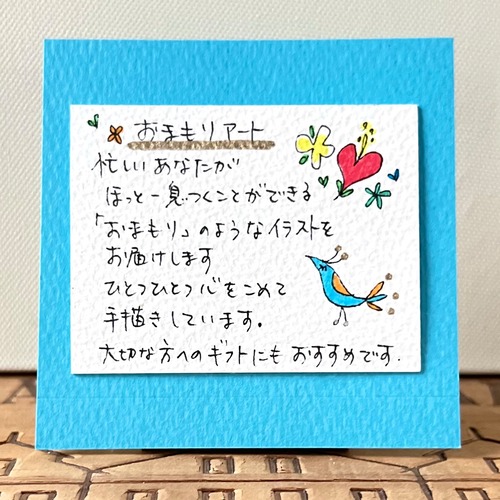 おまもりアート
忙しいあなたが
ほっと一息つくことができる
「おまもり」のようなイラストを
お届けします
ひとつひとつ心をこめて
手描きしています。
大切な方へのギフトにもおすすめです.